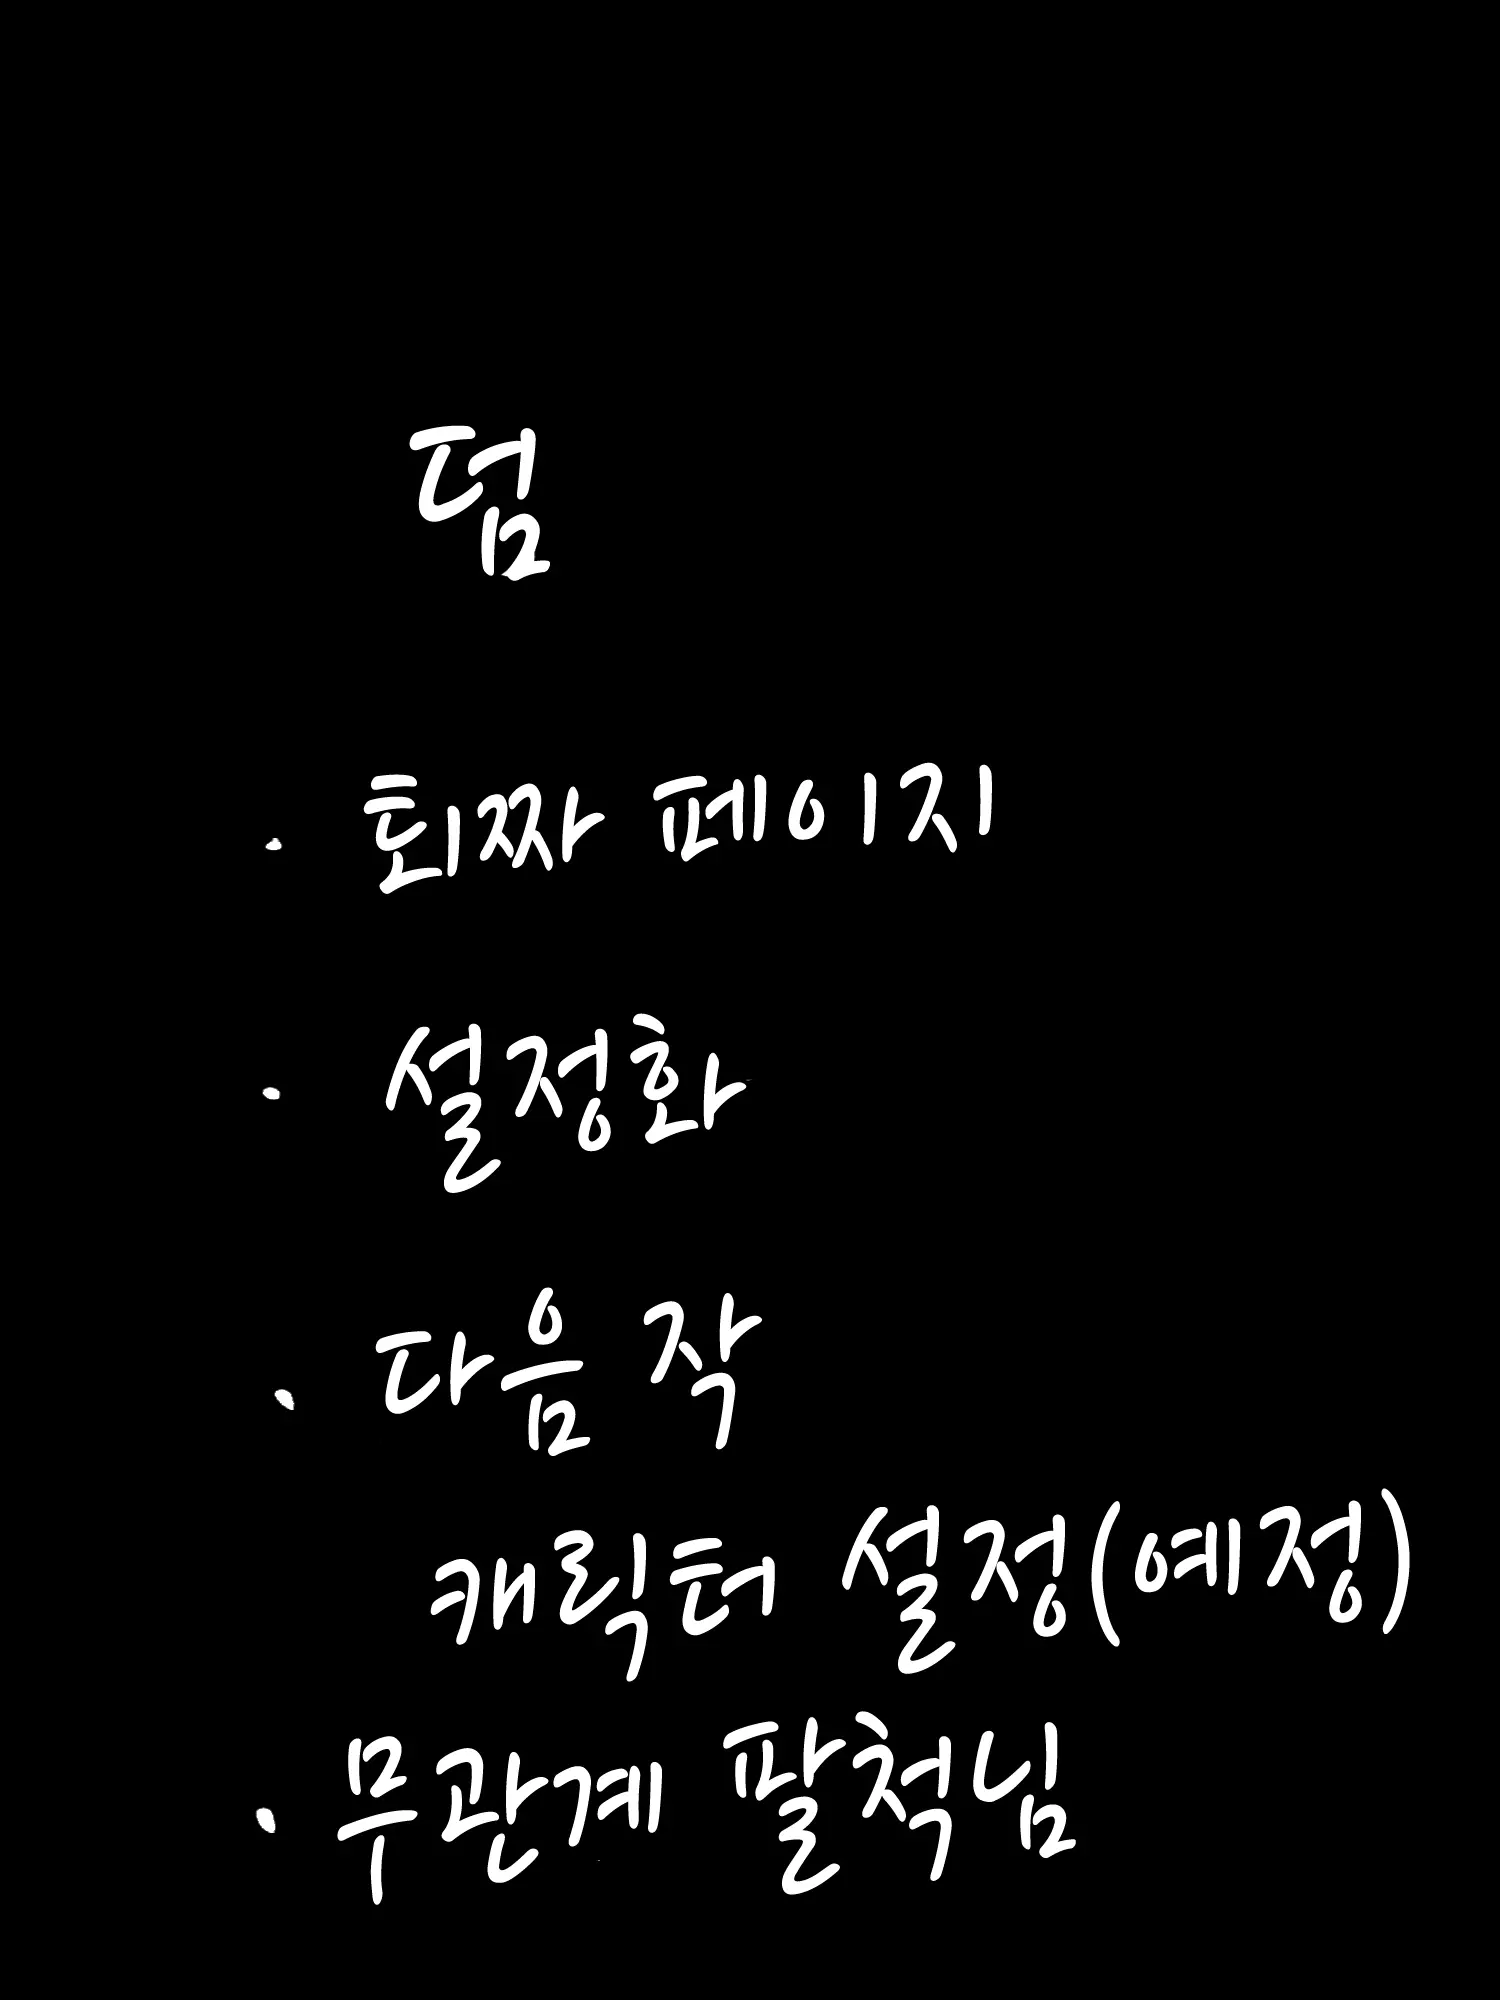 덤
· 퇴짜 페이지
· 설정화
· 다음 작
캐릭터 설정(예정)
· 무관계 팔척님